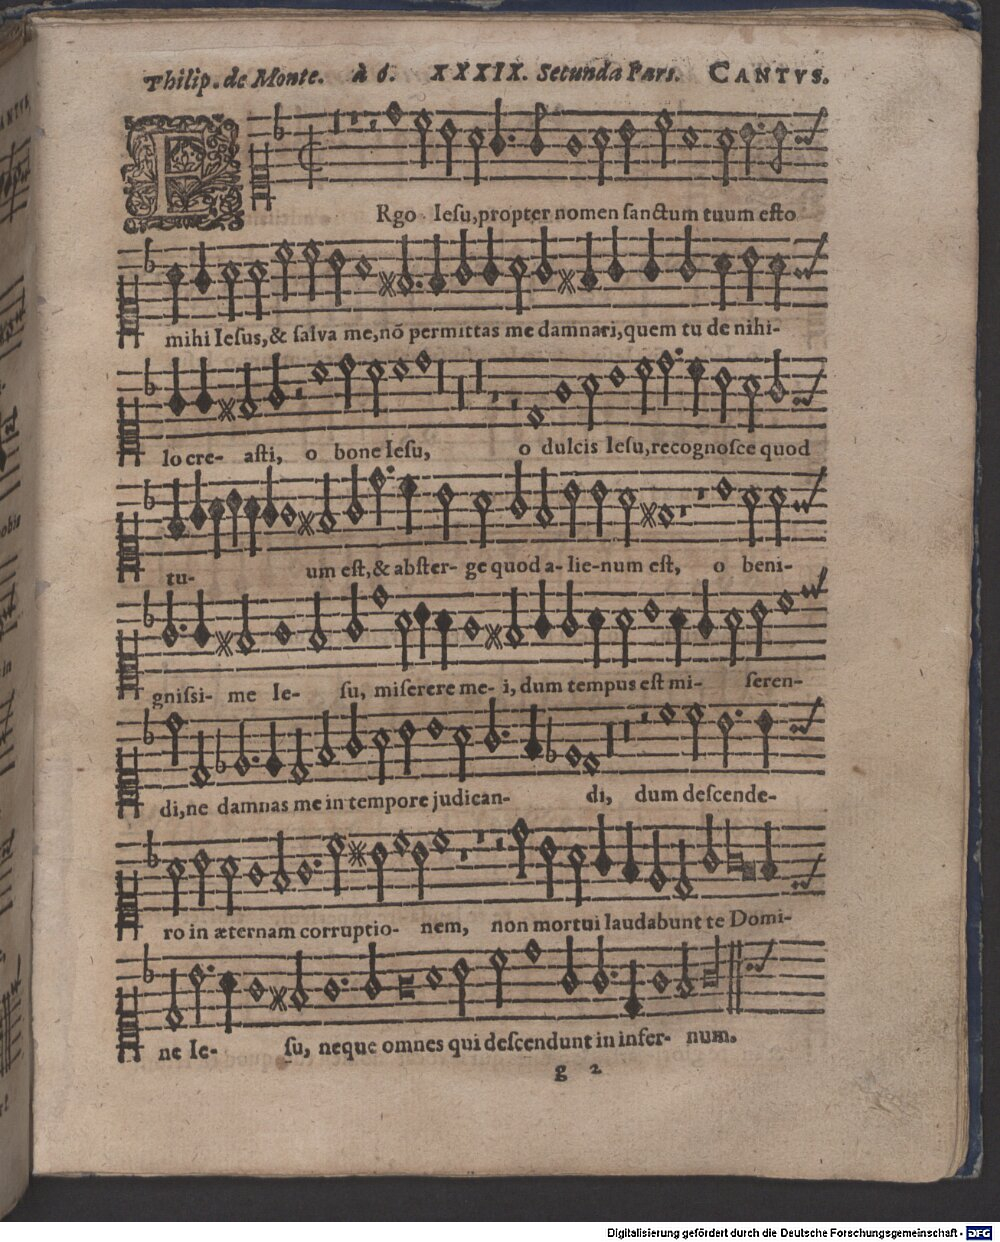 Philip. de Monte. à 6. XXXIX. Secunda Pars. CANTVS.
ERgo Iesu, propter nomen sanctum tuum esto
mihi Iesus, & salva me, nō permittas me damnari, quem tu de nihi-
lo cre- asti, o bone Iesu, o dulcis Iesu, recognosce quod
tu- um est, & abster- ge quod a- lie-num est, o beni-
gnissi- me Ie- su, miserere me- i, dum tempus est mi- seren-
di, ne damnas me in tempore judican- di, dum descende-
ro in æternam corruptio- nem, non mortui laudabunt te Domi-
ne Ie- su, neque omnes qui descendunt in infer- num.
g 2
Digitalisierung gefördert durch die Deutsche Forschungsgemeinschaft - DFG